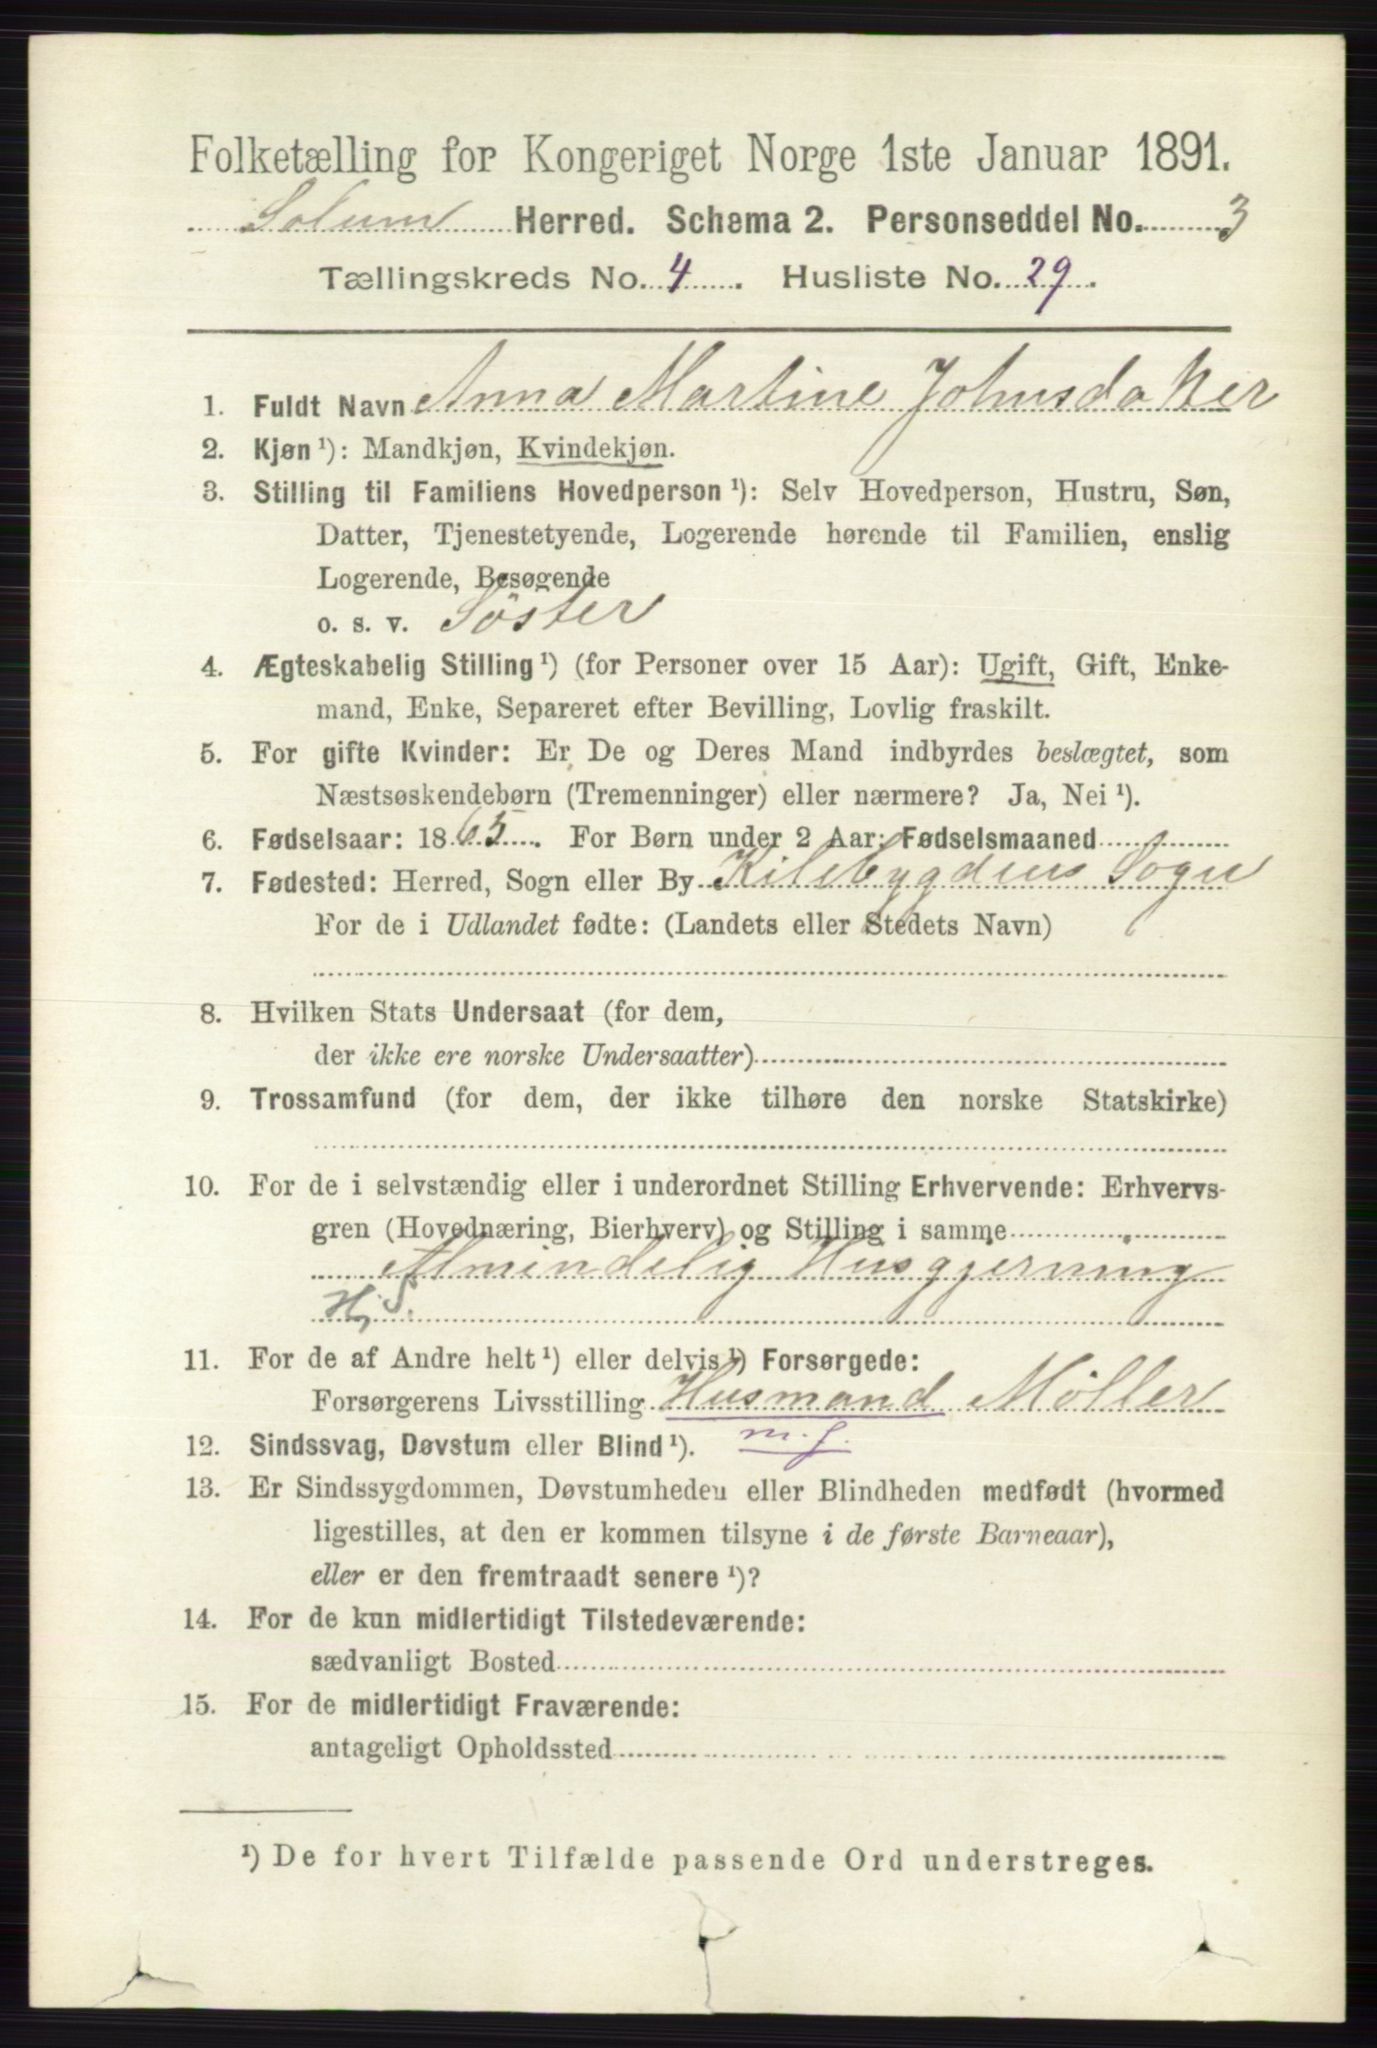 Folketælling for Kongeriget Norge 1ste Januar 1891.
Solum Herred. Schema 2. Personseddel No. 3
Tællingskreds No. 4. Husliste No. 29.
1. Fuldt Navn Anna Martine Johnsdatter
2. Kjøn ¹): Mandkjøn, Kvindekjøn.
3. Stilling til Familiens Hovedperson ¹): Selv Hovedperson, Hustru, Søn,
Datter, Tjenestetyende, Logerende hørende til Familien, enslig
Logerende, Besøgende
o. s. v. Söster
4. Ægteskabelig Stilling ¹) (for Personer over 15 Aar): Ugift, Gift, Enke-
mand, Enke, Separeret efter Bevilling, Lovlig fraskilt.
5. For gifte Kvinder: Er De og Deres Mand indbyrdes beslægtet, som
Næstsøskendebørn (Tremenninger) eller nærmere? Ja, Nei ¹).
6. Fødselsaar: 1865. For Børn under 2 Aar: Fødselsmaaned
7. Fødested: Herred, Sogn eller By Kilebygdens Sogn
For de i Udlandet fødte: (Landets eller Stedets Navn)
8. Hvilken Stats Undersaat (for dem,
der ikke ere norske Undersaatter)
9. Trossamfund (for dem, der ikke tilhøre den norske Statskirke)
10. For de i selvstændig eller i underordnet Stilling Erhvervende: Erhvervs-
gren (Hovednæring, Bierhverv) og Stilling i samme
Almindelig Husgjerning
H, S.
11. For de af Andre helt ¹) eller delvis ¹) Forsørgede:
Forsørgerens Livsstilling Husmand Möller
m. j.
12. Sindssvag, Døvstum eller Blind ¹).
13. Er Sindssygdommen, Døvstumheden eller Blindheden medfødt (hvormed
ligestilles, at den er kommen tilsyne i de første Barneaar),
eller er den fremtraadt senere ¹)?
14. For de kun midlertidigt Tilstedeværende:
sædvanligt Bosted
15. For de midlertidigt Fraværende:
antageligt Opholdssted
¹) De for hvert Tilfælde passende Ord understreges.